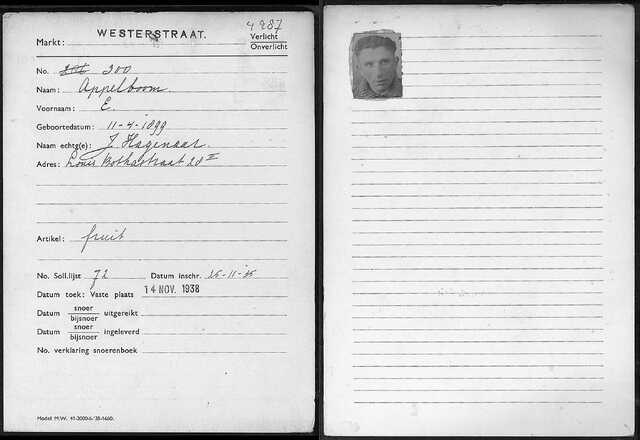 4287
WESTERSTRAAT.
Markt:
Verlicht
Onverlicht
No. 200
Naam: Appelboom.
Voornaam: E.
Geboortedatum: 11-4-1899
Naam echtg(e): J. Hagenaar.
Adres: Louis Bothastraat 20 II
Artikel: fruit
No. Soll.lijst 72 Datum inschr. 25-11-'35
Datum toek: Vaste plaats 14 NOV. 1938
Datum snoer uitgereikt
bijsnoer
Datum snoer ingeleverd
bijsnoer
No. verklaring snoerenboek